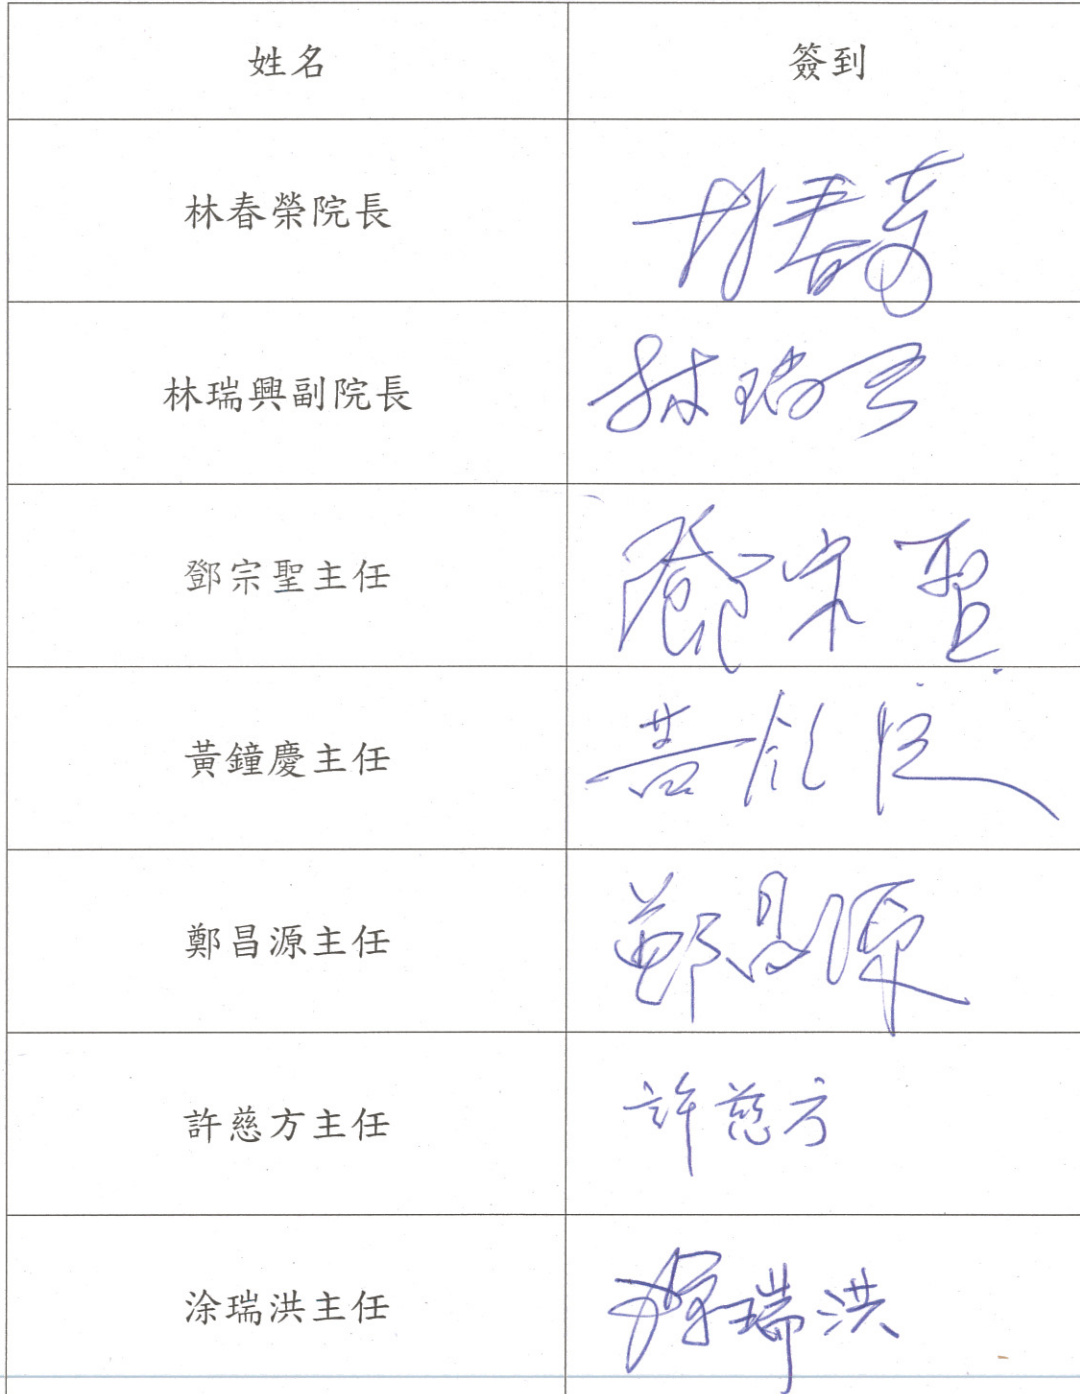 姓名 簽到
林春榮院長 林春榮
林瑞興副院長 林瑞興
鄧宗聖主任 鄧宗聖
黃鐘慶主任 黃鐘慶
鄭昌源主任 鄭昌源
許慈方主任 許慈方
涂瑞洪主任 涂瑞洪